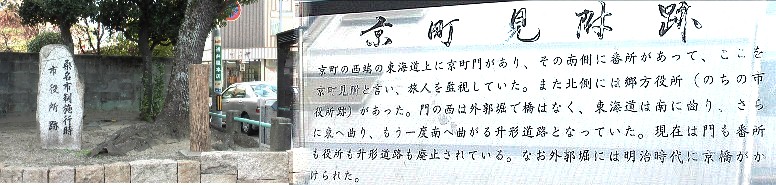 桑名市制施行時
市役所跡
京町見附跡
京町の西端の東海道上に京町門があり、その南側に番所があって、ここを
京町見附と言い、旅人を監視していた。また北側には郷方役所（のちの市
役所跡）があった。門の西は外郭堀で橋はなく、東海道は南に曲り、さら
に東へ曲り、もう一度南へ曲がる升形道路となっていた。現在は門も番所
も役所も升形道路も廃止されている。なお外郭堀には明治時代に京橋がか
けられた。